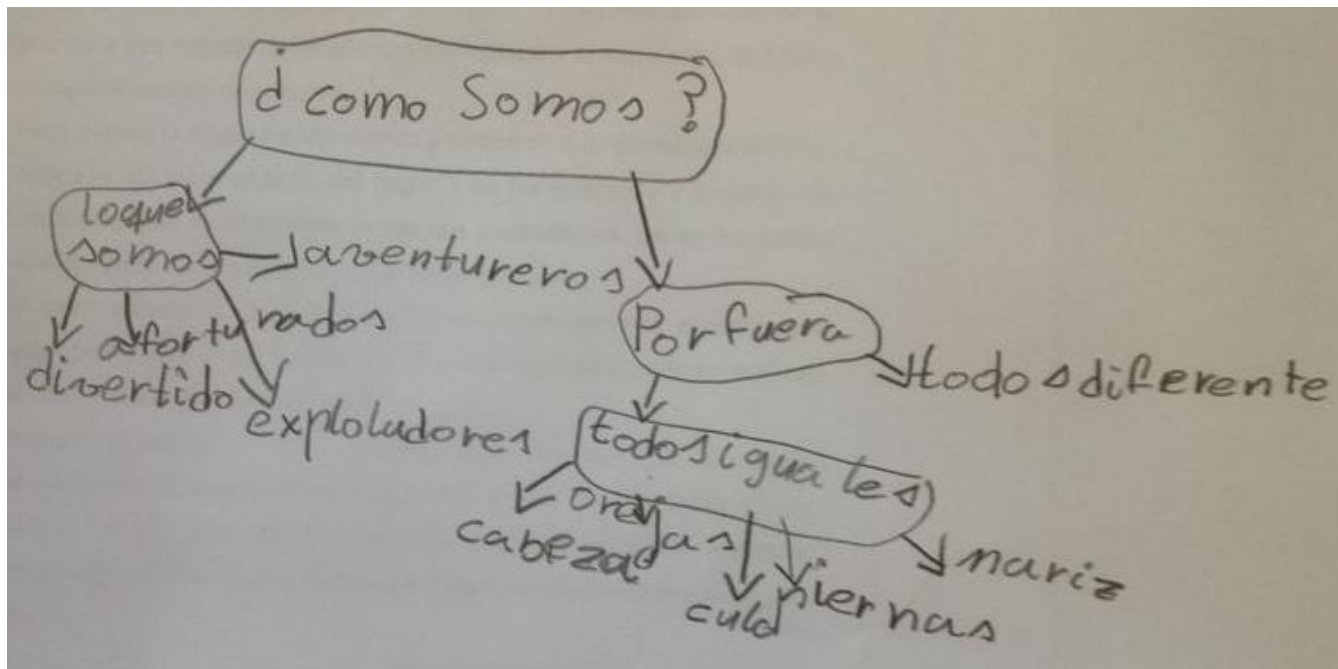 ¿como somos?
loque
somos
aventureros
afortunados
divertido
exploludores
Por fuera
todos diferente
todos iguales
orejas
cabezas
culo
piernas
nariz